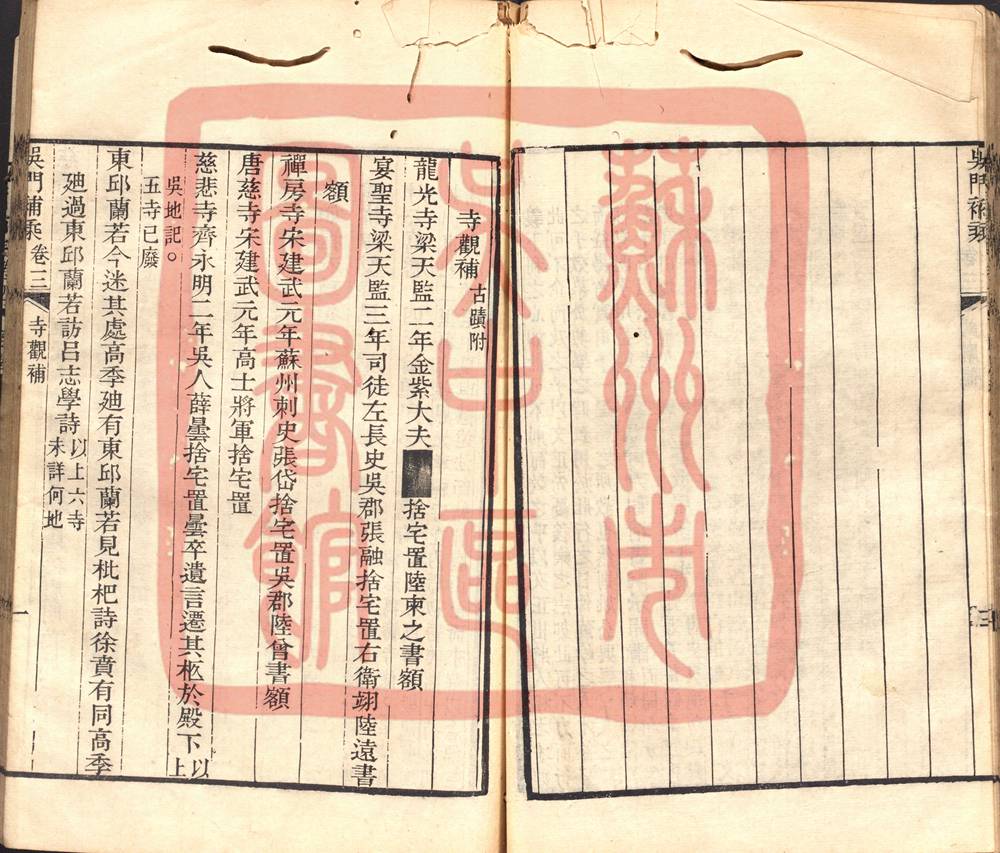 吳門補乘
寺觀補 古蹟附
龍光寺梁天監二年金紫大夫 捨宅置陸柬之書額
宴聖寺梁天監三年司徒左長史吳郡張融捨宅置右衛翊陸遠書
額
禪房寺宋建武元年蘇州刺史張岱捨宅置吳郡陸曾書額
唐慈寺宋建武元年高士將軍捨宅置
慈悲寺齊永明二年吳人薛曇捨宅置曇卒遺言遷其柩於殿下以上
吳地記。
五寺已廢
東邱蘭若今迷其處高季廸有東邱蘭若見枇杷詩徐賁有同高季
廸過東邱蘭若訪呂志學詩以上六寺
未詳何地
吳門補乘 卷三 寺觀補 一
蘇州市
吳中區
圖書館